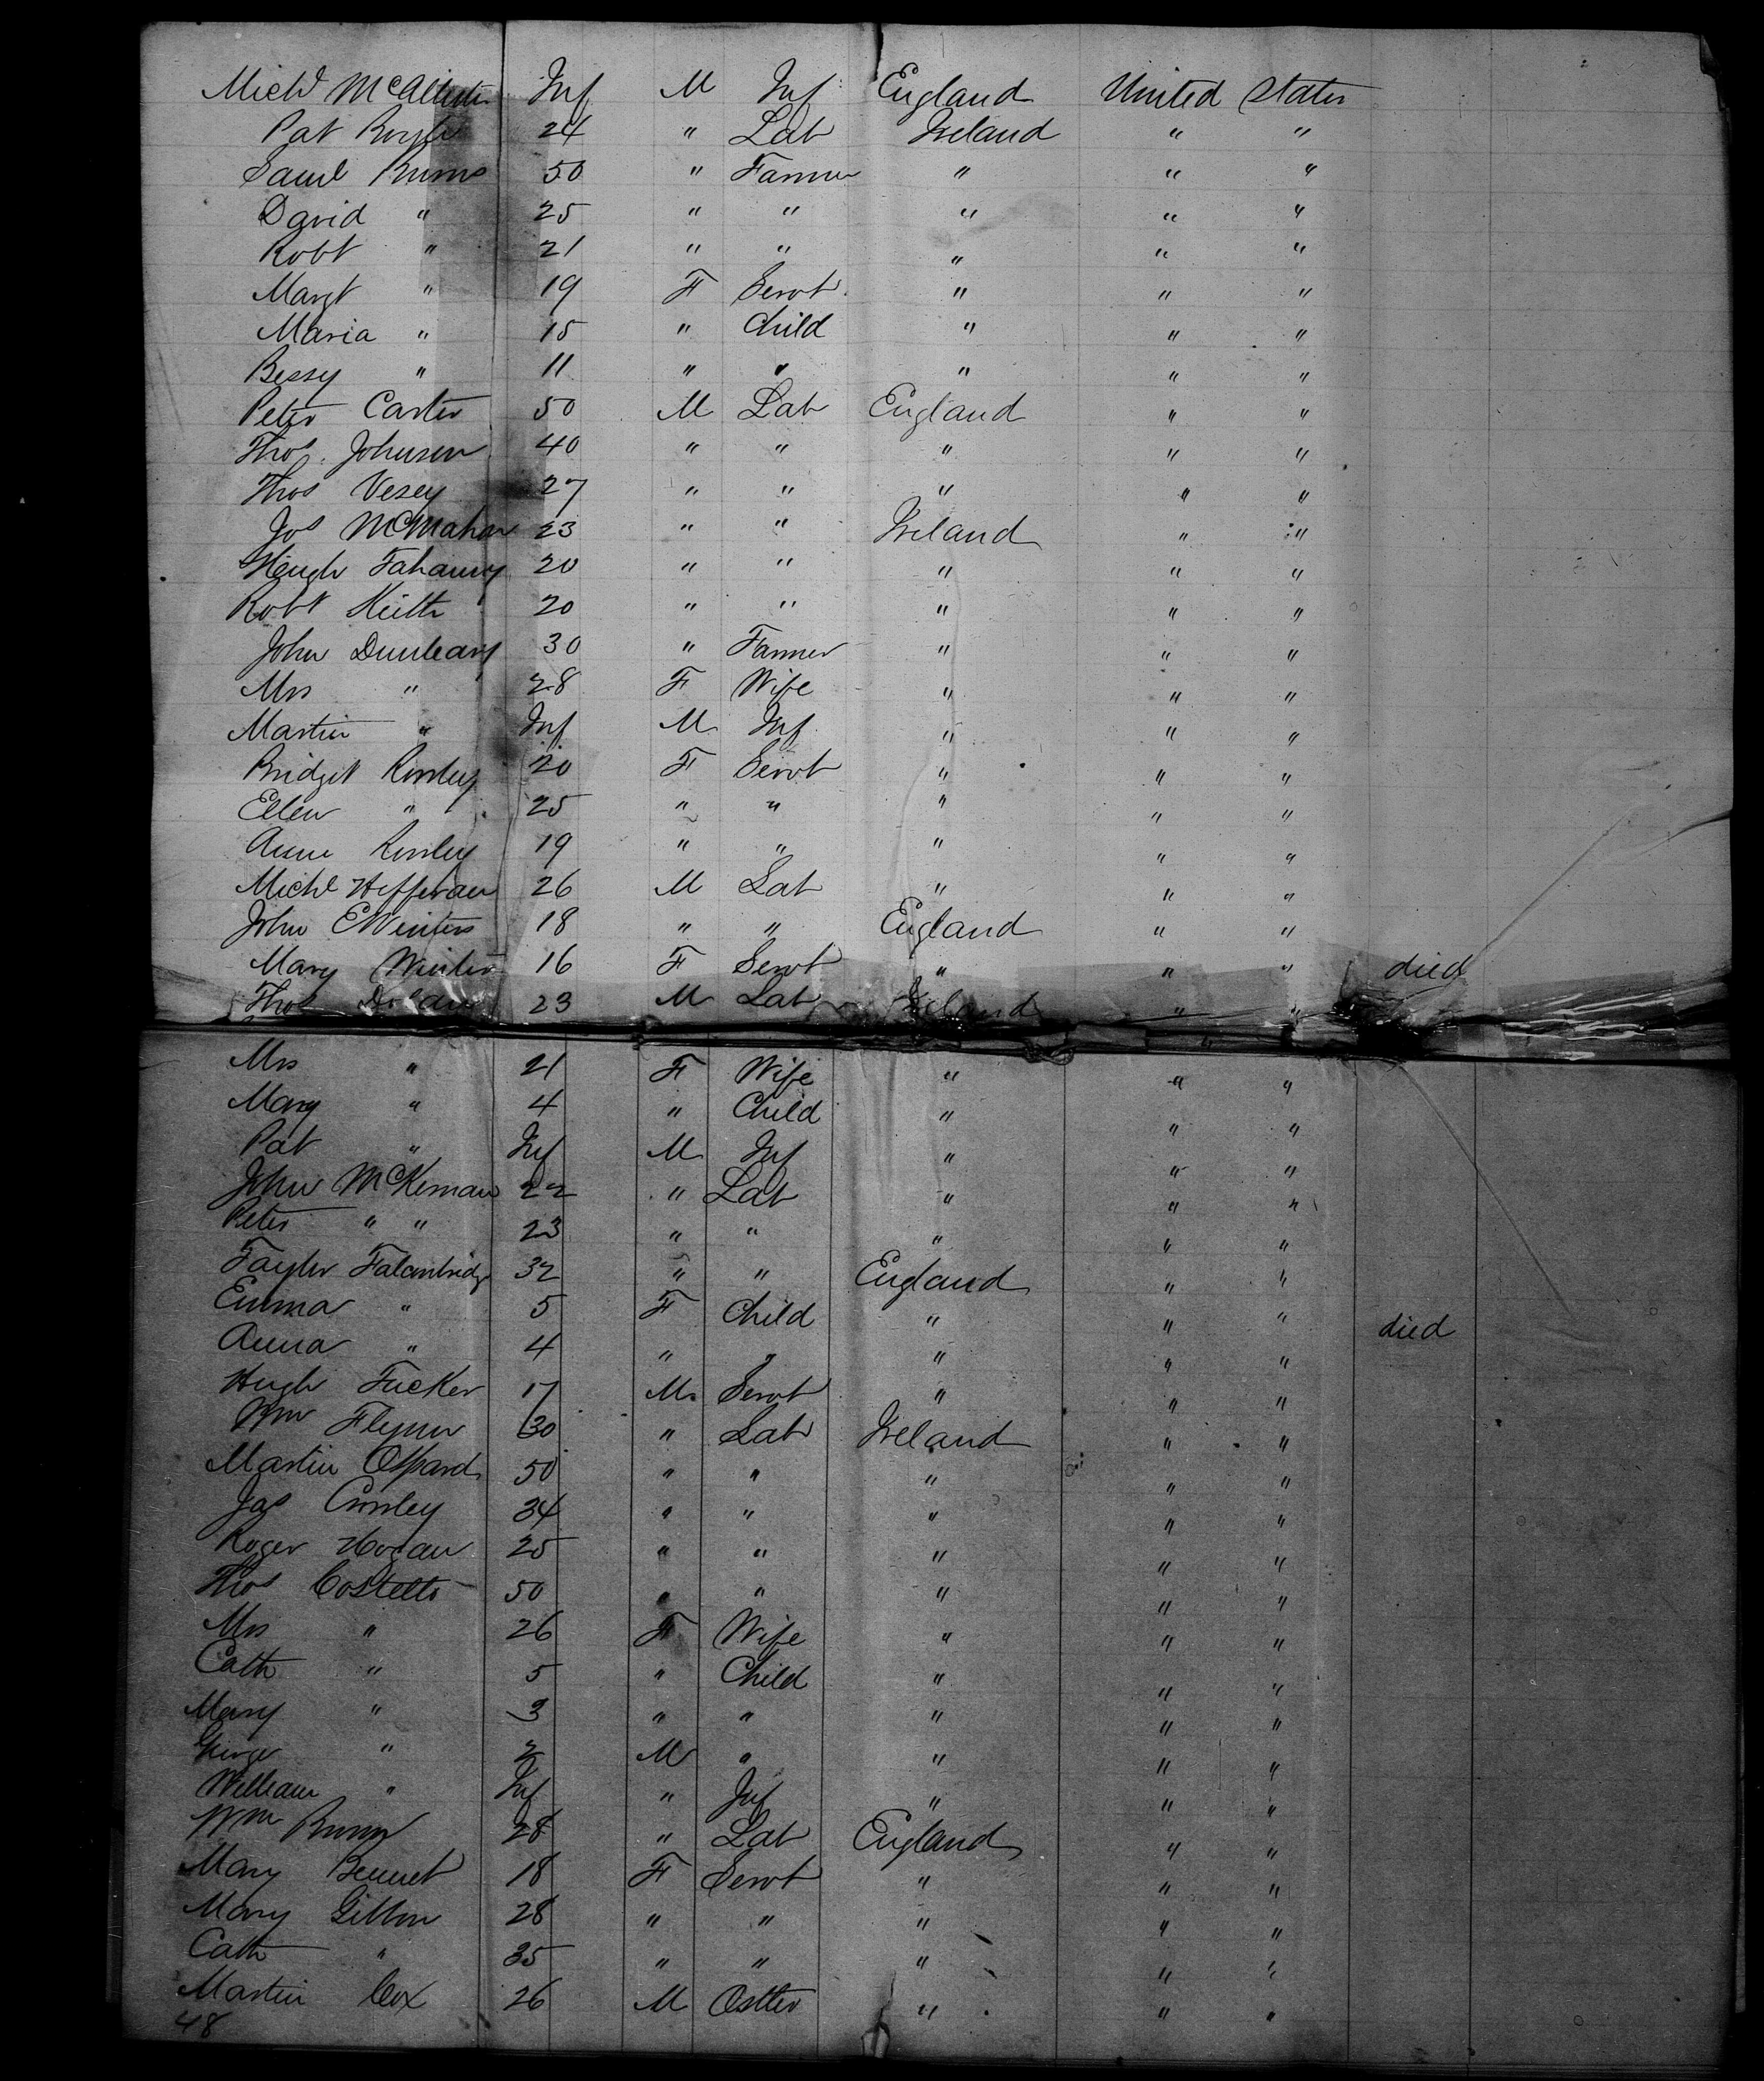 Michl McAllister Inf M Inf England United States
Pat 24 " Lab Ireland " "
Saml Burns 50 " Farmer " " "
David " 25 " " " " "
Robt " 21 " " " " "
Margt " 19 F Servt " " "
Maria " 15 " Child " " "
Bessy " 11 " " " " "
Peter Carter 50 M Lab England " "
Thos. Johnson 40 " " " " "
Thos Vesey 27 " " " " "
Jos McMahon 23 " " Ireland " "
Hugh Fahauny 20 " " " " "
Robt Keith 20 " " " " "
John Dunleavy 30 " Farmer " " "
Mrs " 28 F Wife " " "
Martin " Inf M Inf " " "
Bridget 20 F Servt " " "
Ellen " 25 " " " " "
Anne 19 " " " " "
Michl Heffernan 26 M Lab " " "
John E Winters 18 " " England " "
Mary Winter 16 F Servt " " " died
Thos Dolan 23 M Lab Ireland " "
Mrs " 21 F Wife " " "
Mary " 4 " Child " " "
Pat " Inf M Inf " " "
John McKernan 22 " Lab " " "
Peter " " 23 " " " " "
Taylor Falconbridge 32 " " England " "
Emma " 5 F Child " " " died
Anna " 4 " " " " "
Hugh Tucker 17 M Servt " " "
Wm Flynn 30 " Lab Ireland " "
Martin 50 " " " " "
Jas Conley 34 " " " " "
Roger Hogan 25 " " " " "
Thos Costello 50 " " " " "
Mrs " 26 F Wife " " "
Cath " 5 " Child " " "
Mary " 3 " " " " "
George " 2 M " " " "
William " Inf " Inf " " "
Wm 28 " Lab England " "
Mary Bennet 18 F Servt " " "
Mary Gibbon 28 " " " " "
Cath " 35 " " " " "
Martin Cox 26 M Ostler " " "
48